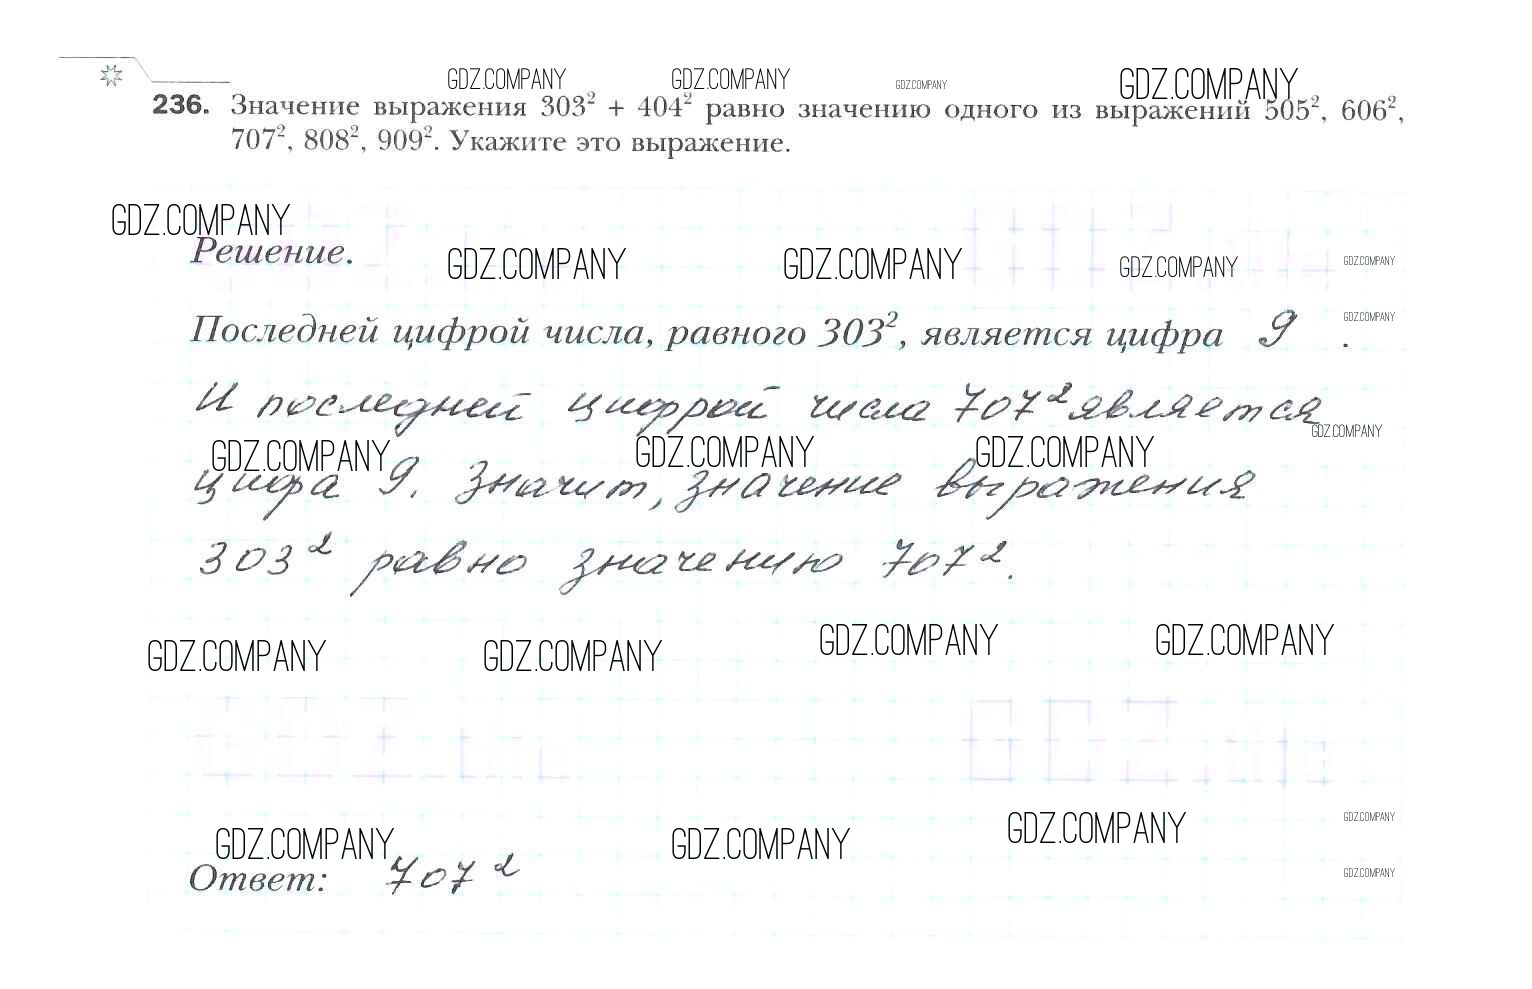 GDZ.COMPANY GDZ.COMPANY GDZ.COMPANY GDZ.COMPANY
236. Значение выражения 303² + 404² равно значению одного из выражений 505², 606²,
707², 808², 909². Укажите это выражение.
GDZ.COMPANY
Решение.
GDZ.COMPANY GDZ.COMPANY GDZ.COMPANY GDZ.COMPANY
Последней цифрой числа, равного 303², является цифра 9 .
GDZ.COMPANY
И последней цифрой числа 707² является
GDZ.COMPANY GDZ.COMPANY GDZ.COMPANY GDZ.COMPANY
цифра 9. Значит, значение выражения
303² равно значению 707².
GDZ.COMPANY GDZ.COMPANY GDZ.COMPANY GDZ.COMPANY
GDZ
GDZ.COMPANY GDZ.COMPANY GDZ.COMPANY GDZ.COMPANY
Ответ: 707²
GDZ.COMPANY